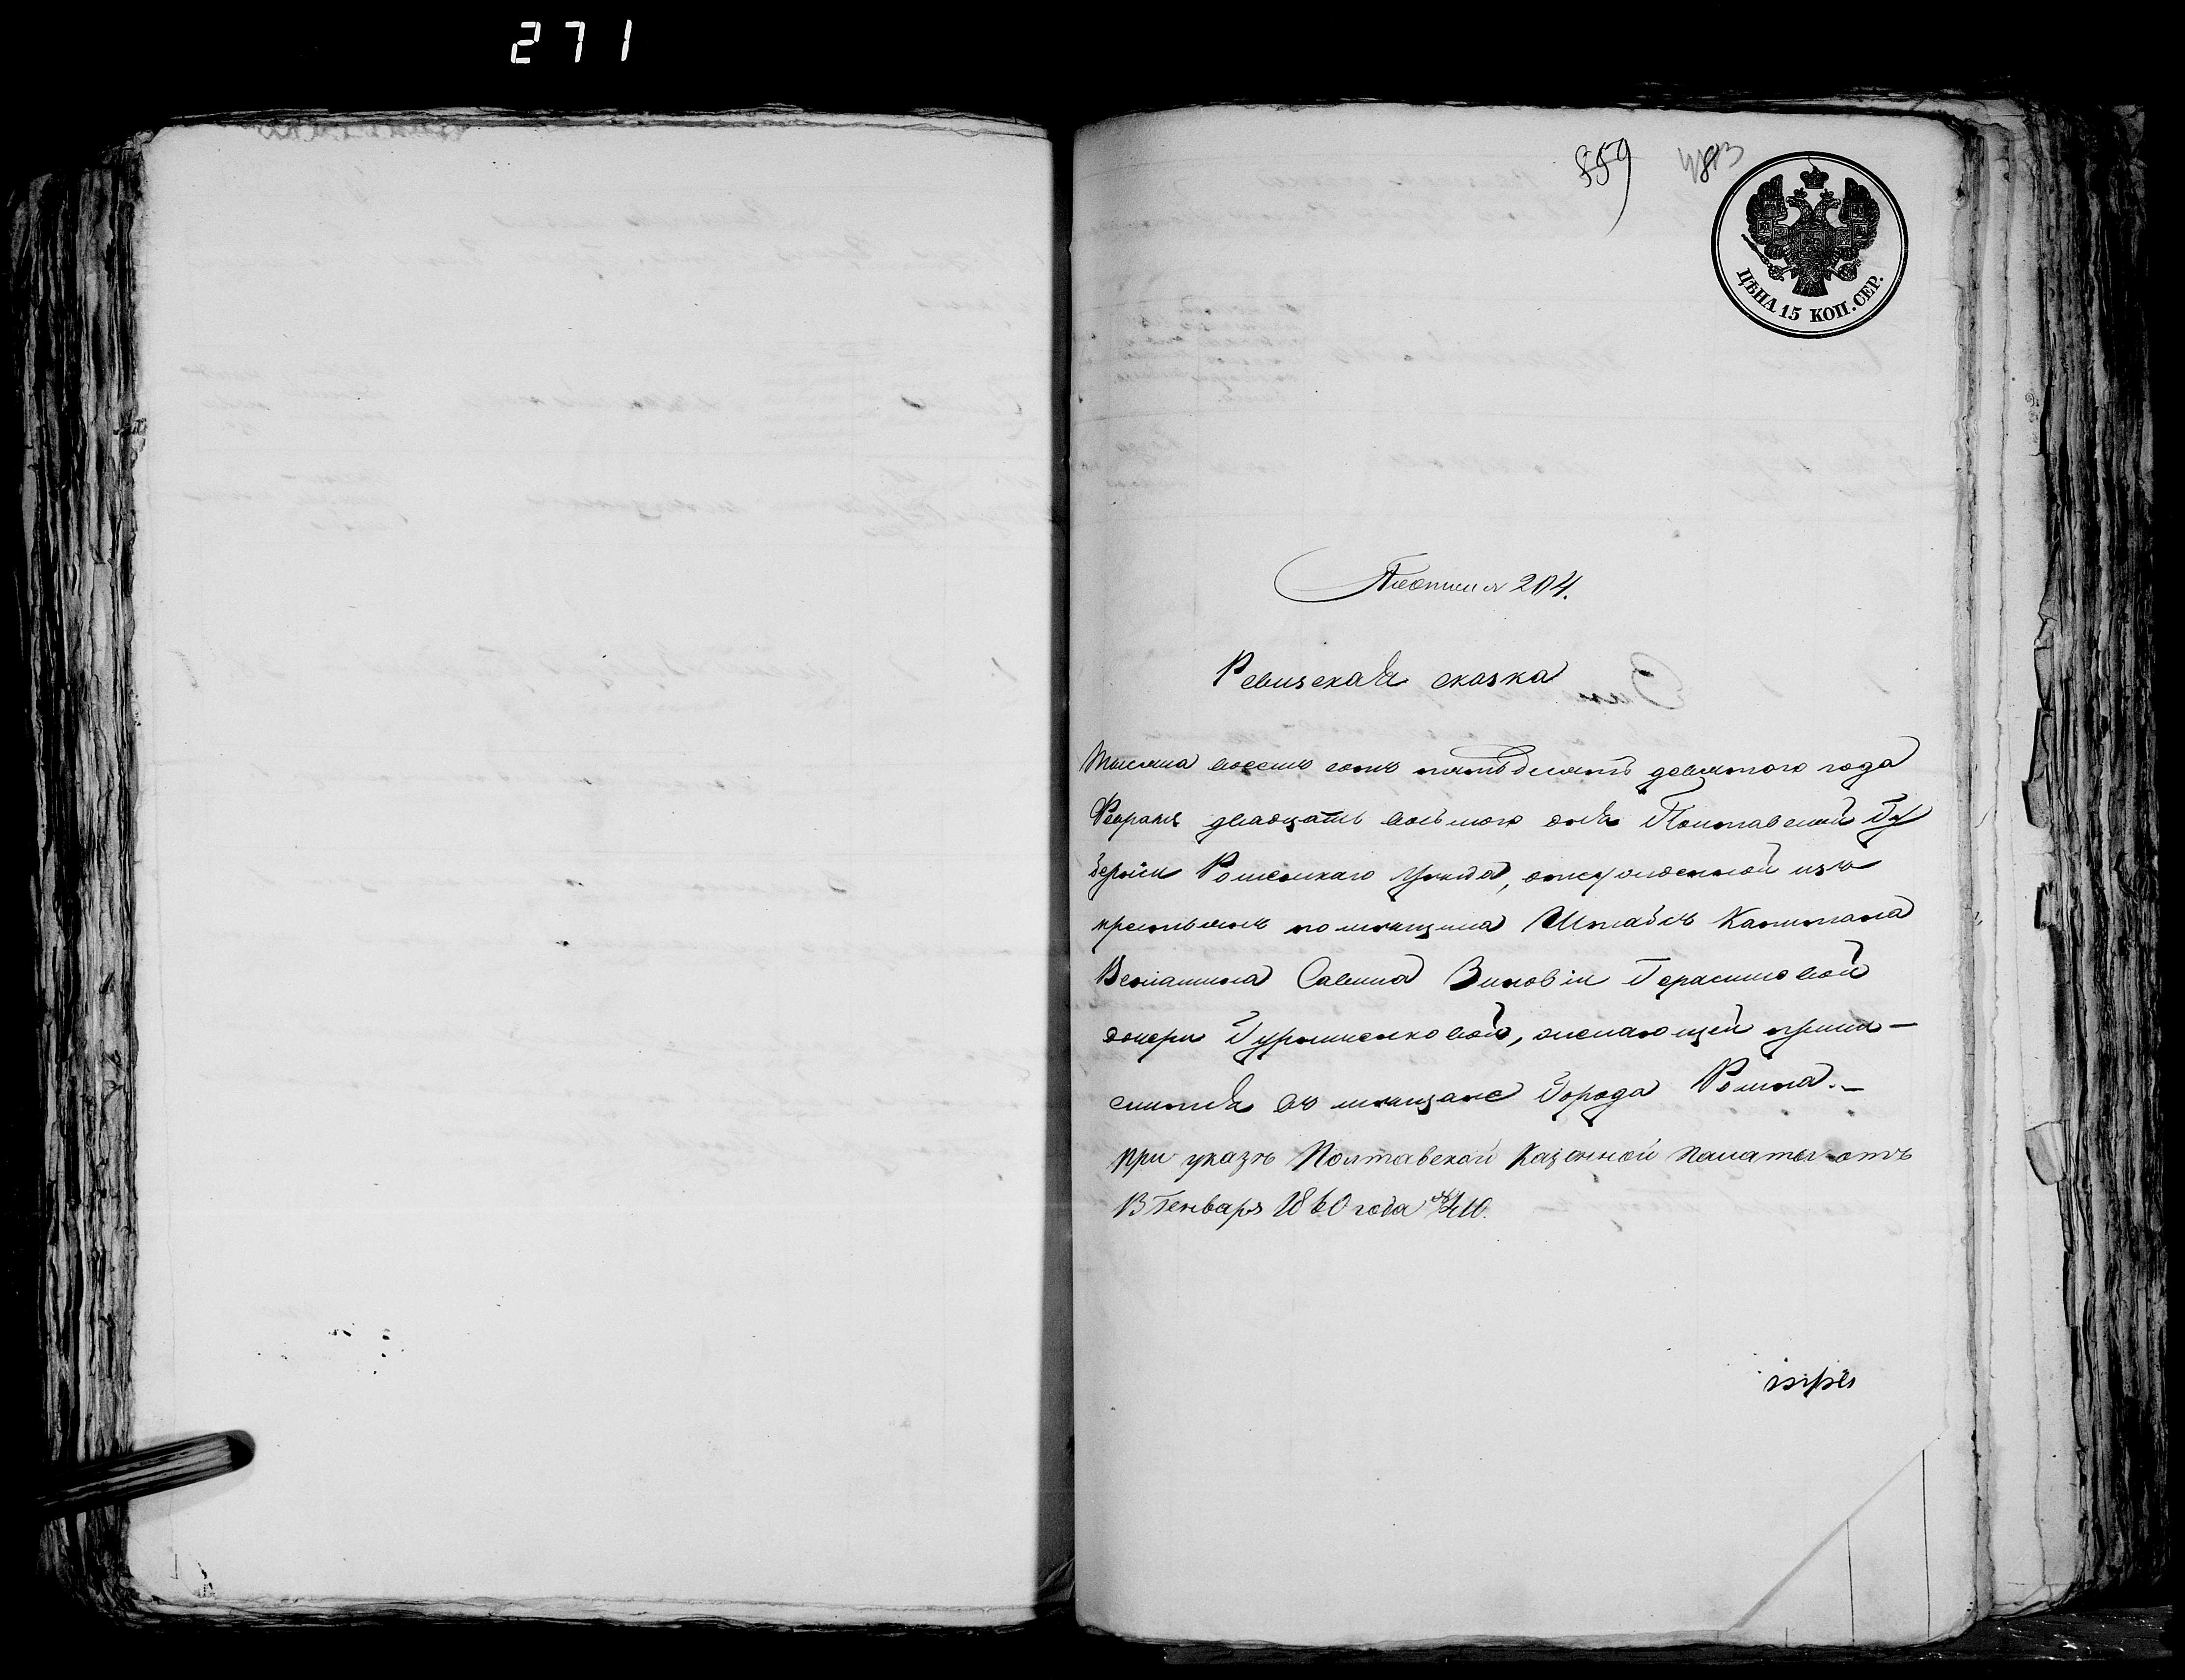 271
859
ЦѢНА 15 КОП. СЕР.
204.
Ревизская сказка
Тысяча восемь сотъ пятьдесятъ девятого года
Февраля двадцать восьмого дня Полтавской Гу
берніи Роменскаго уѣзда, отсужденной изъ
крестьянъ помѣщика Штабсъ Капитана
Веніамина Савича Зиновіи Герасимовой
дочери, желающей припи-
сатся въ мѣщане Города Ромна.-
При указѣ Полтавской Казенной Палаты отъ
13 Генваря 1860 года №